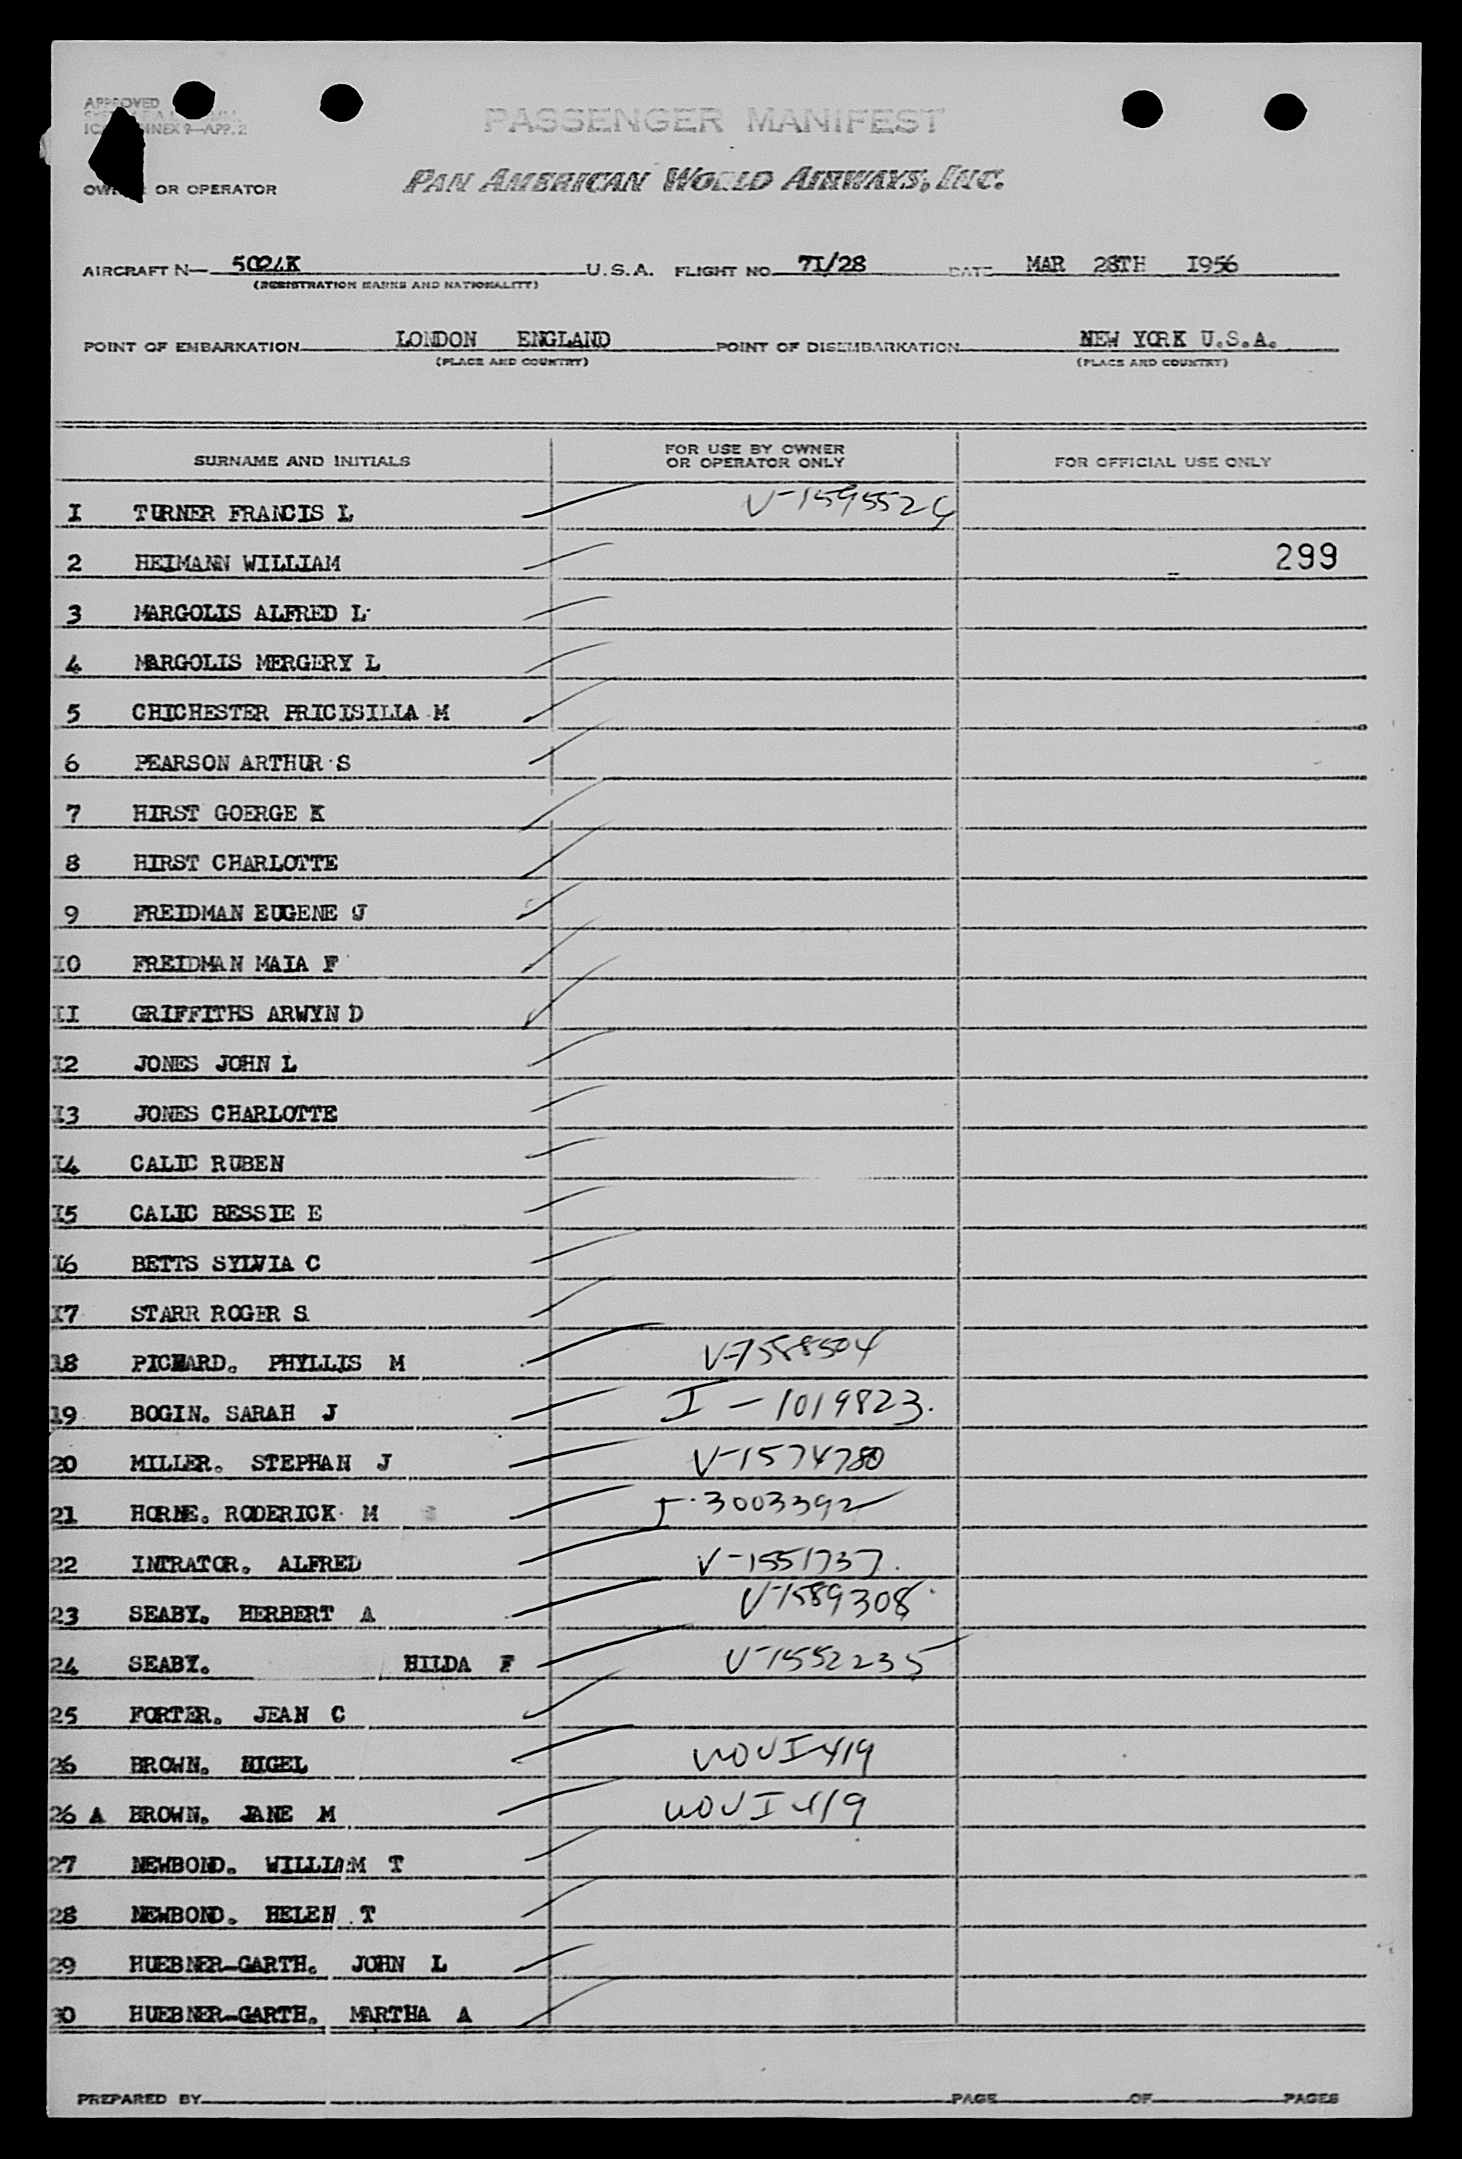 APPROVED
PASSENGER MANIFEST
OR OPERATOR PAN AMERICAN WORLD AIRWAYS, INC.
AIRCRAFT N— 5024K U.S.A. FLIGHT NO. 71/28 DATE MAR 28TH 1956
(REGISTRATION MARKS AND NATIONALITY)
POINT OF EMBARKATION LONDON ENGLAND POINT OF DISEMBARKATION NEW YORK U.S.A.
(PLACE AND COUNTRY) (PLACE AND COUNTRY)
SURNAME AND INITIALS FOR USE BY OWNER OR OPERATOR ONLY FOR OFFICIAL USE ONLY
I TURNER FRANCIS L V-1595524
2 HEIMANN WILLIAM 299
3 MARGOLIS ALFRED L
4 MARGOLIS MERGERY L
5 CHICHESTER PRICISILLA M
6 PEARSON ARTHUR S
7 HIRST GOERGE K
8 HIRST CHARLOTTE
9 FREIDMAN EUGENE J
I0 FREIDMAN MAIA F
II GRIFFITHS ARWYN D
I2 JONES JOHN L
I3 JONES CHARLOTTE
I4 CALIC RUBEN
I5 CALIC BESSIE E
I6 BETTS SYLVIA C
I7 STARR ROGER S
18 PICKARD. PHYLLIS M V-1588504
19 BOGIN. SARAH J I-1019823.
20 MILLER. STEPHAN J V-1574780
21 HORNE. RODERICK M I-3003392
22 INTRATOR. ALFRED V-1551737.
23 SEABY. HERBERT A V-1589308
24 SEABY. HILDA F V-1552235
25 PORTER. JEAN C
26 BROWN. NIGEL
26 A BROWN. JANE M
27 NEWBOND. WILLIAM T
28 NEWBOND. HELEN T
29 HUEBNER-GARTH. JOHN L
30 HUEBNER-GARTH. MARTHA A
PREPARED BY PAGE OF PAGES